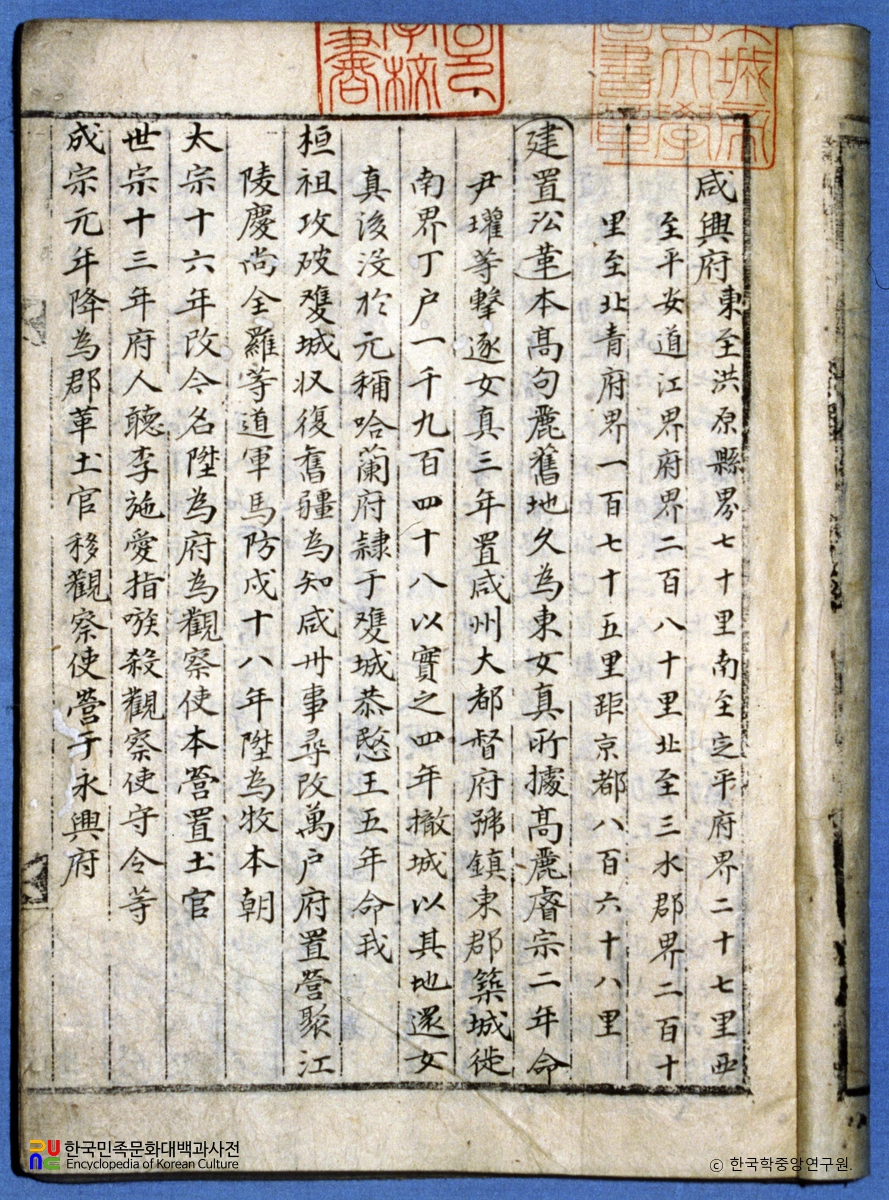 咸興府東至洪原縣界七十里南至定平府界二十七里西
至平安道江界府界二百八十里北至三水郡界二百十
里至北青府界一百七十五里距京都八百六十八里
建置沿革本高句麗舊地久為東女真所據高麗睿宗二年命
尹瓘等擊逐女真三年置咸州大都督府號鎮東郡築城徙
南界丁戶一千九百四十八以實之四年撤城以其地還女
真後沒於元稱哈蘭府隷于雙城恭愍王五年命我
桓祖攻破雙城収復舊疆為知咸州事尋改萬戶府置營聚江
陵慶尚全羅等道軍馬防戍十八年陞為牧本朝
太宗十六年改今名陞為府為觀察使本營置土官
世宗十三年府人聽李施愛指嗾殺觀察使守令等
成宗元年降為郡革土官移觀察使營于永興府
한국민족문화대백과사전
Encyclopedia of Korean Culture
© 한국학중앙연구원.